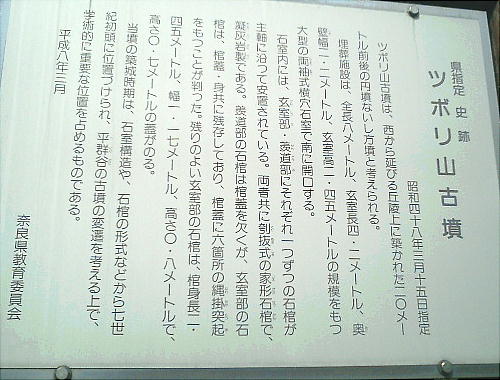 県指定 史跡
ツボリ山古墳
昭和四十八年三月十五日指定
ツボリ山古墳は、西から延びる丘陵上に築かれた二〇メー
トル前後の円墳ないし方墳と考えられる。
埋葬施設は、全長八メートル、玄室長四・二メートル、奥
壁幅二・二メートル、玄室高二・四五メートルの規模をもつ
大型の両袖式横穴石室で南に開口する。
石室内には、玄室部・羨道部にそれぞれ一つずつの石棺が
主軸に沿って安置されている。両者共に刳抜式の家形石棺で、
凝灰岩製である。羨道部の石棺は棺蓋を欠くが、玄室部の石
棺は、棺蓋・身共に残存しており、棺蓋に六箇所の縄掛突起
をもつことが判った。残りのよい玄室部の石棺は、棺身長二・
四五メートル、幅一・一七メートル、高さ〇・八メートルで、
高さ〇・七メートルの蓋がのる。
当墳の築城時期は、石室構造や、石棺の形式などから七世
紀初頭に位置づけられ、平群谷の古墳の変遷を考える上で、
学術的に重要な位置を占めるものである。
平成八年三月
奈良県教育委員会